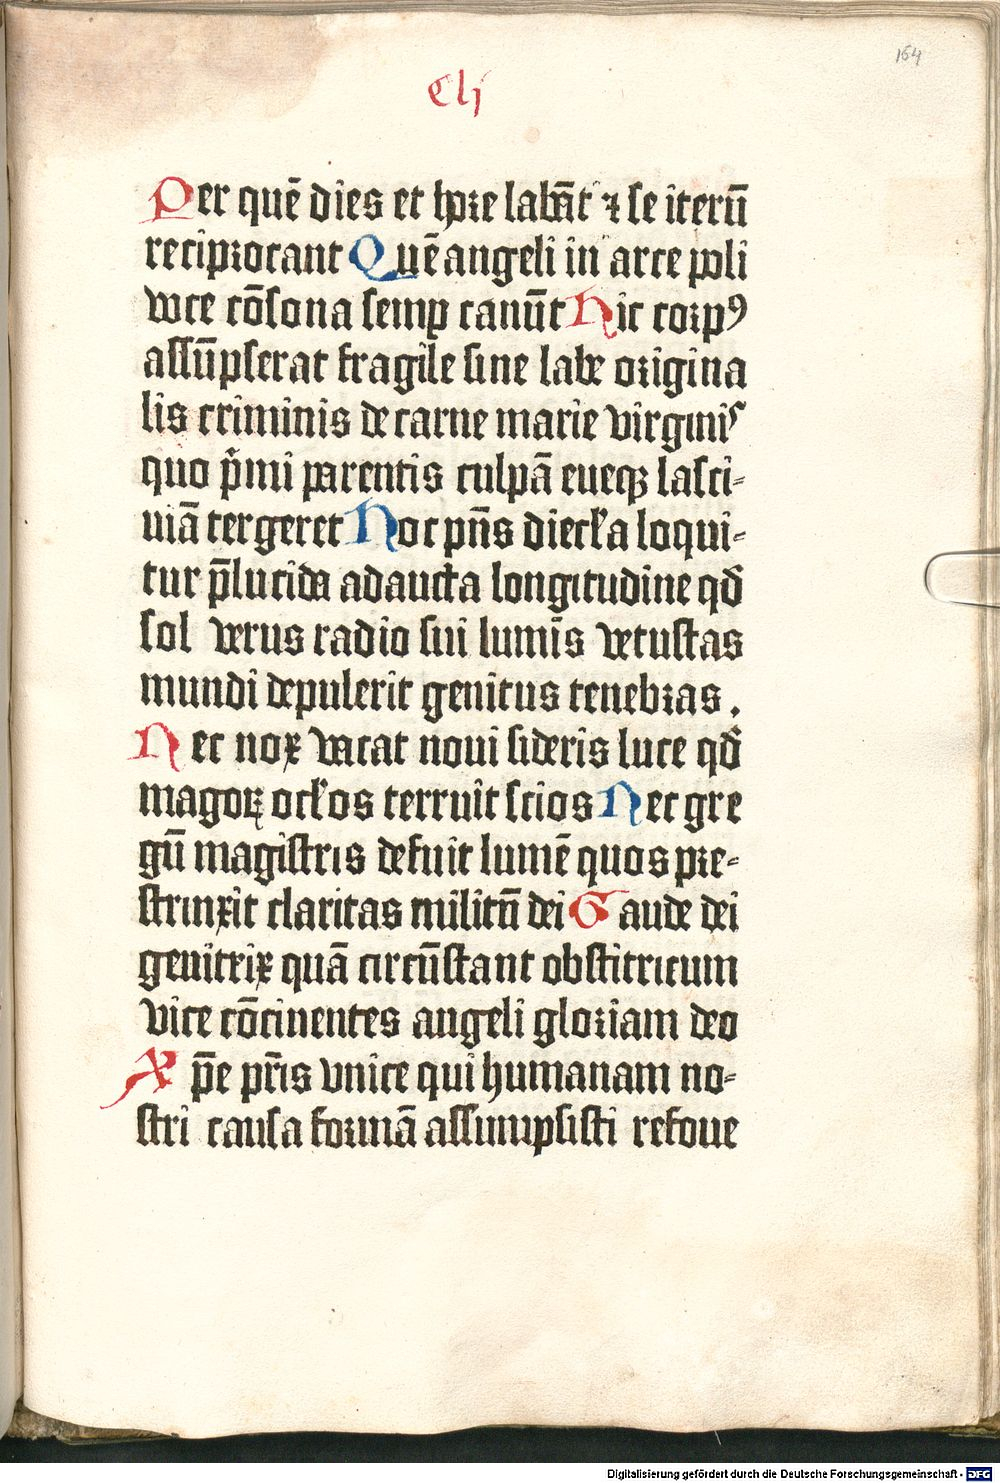 164
Clj
Per quē dies et hore labāt ⁊ se iterū
reciprocant Quē angeli in arce poli
voce cōsona semp canūt Hic corpꝰ
assūpserat fragile sine labe origina
lis criminis de carne marie virginis
quo p̄mi parentis culpā eueqꝫ lasci-
uiā tergeret Hoc pn̄s diecl̕a loqui-
tur p̄lucida adaucta longitudine qd̄
sol verus radio sui lumīs vetustas
mundi depulerit genitus tenebras .
Nec nox vacat noui sideris luce qd̄
magoꝝ ocl̕os terruit scios Nec gre
gū magistris defuit lumē quos pre-
strinxit claritas militū dei Gaude dei
genitrix quā circūstant obstitricum
vice cōcinentes angeli gloriam deo
Xp̄e pr̄is vnice qui humanam no-
stri causa formā assumpsisti refoue
Digitalisierung gefördert durch die Deutsche Forschungsgemeinschaft - DFG